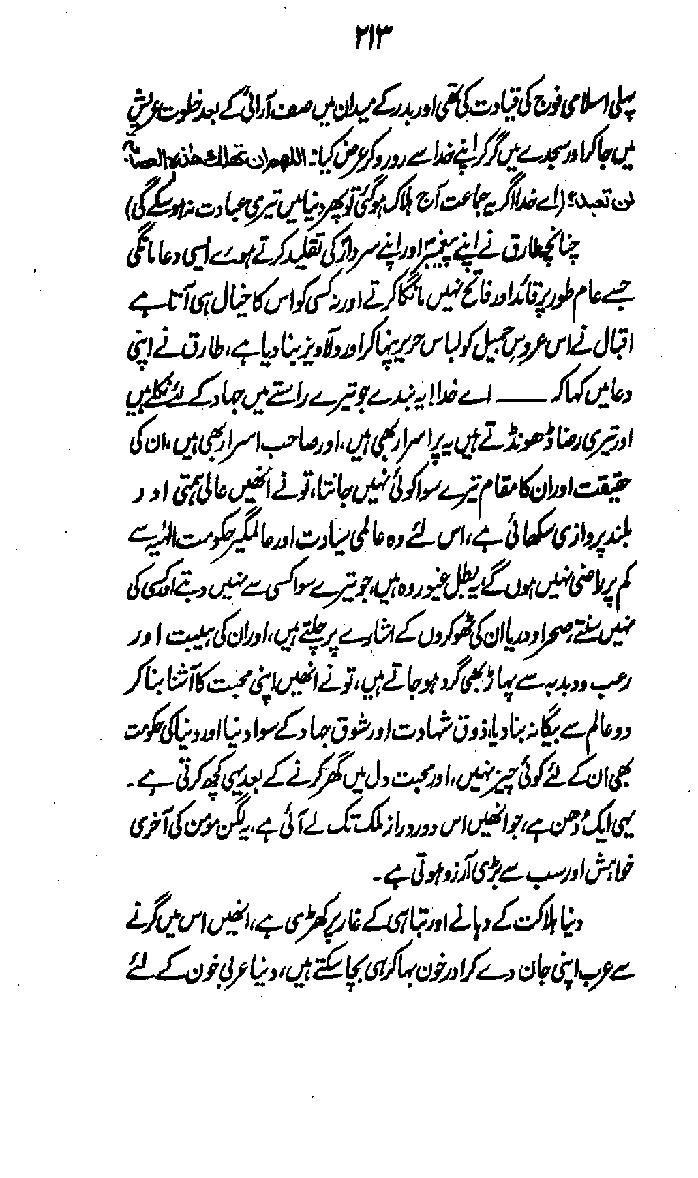 ۲۱۳
پہلی اسلامی فوج کی قیادت کی تھی اور بدر کے میدان میں صف آرائی کے بعد خلوت عریش
میں جا کر اور سجدے میں گر کر اپنے خدا سے رو رو کر عرض کیا:۔ اللھم ان تھلك ھٰذہ العصابۃ
لن تعبد؛ (اے خدا اگر یہ جماعت آج ہلاک ہو گئی تو پھر دنیا میں تیری عبادت نہ ہو سکے گی)
چنانچہ طارق نے اپنے پیغمبرؐ اور اپنے سردار کی تقلید کرتے ہوے ایسی دعا مانگی
جسے عام طور پر قائد اور فاتح نہیں مانگا کرتے اور نہ کسی کو اس کا خیال ہی آتا ہے
اقبال نے اس عروس جمیل کو لباس حریر پہنا کر اور دلآویز بنا دیا ہے، طارق نے اپنی
دعا میں کہا کہ ——— اے خدا! یہ بندے جو تیرے راستے میں جہاد کے لئے نکلے ہیں
اور تیری رضا ڈھونڈتے ہیں یہ پر اسرار بھی ہیں، اور صاحب اسرار بھی ہیں، ان کی
حقیقت اور ان کا مقام تیرے سوا کوئی نہیں جانتا، تو نے انھیں عالی ہمتی اور
بلند پروازی سکھائی ہے، اس لئے وہ عالمی سیادت اور عالمگیر حکومت الٰہیہ سے
کم پر راضی نہیں ہوں گے؛ یہ بطل غیور وہ ہیں، جو تیرے سوا کسی سے نہیں دبتے اور کسی کی
نہیں سنتے، صحرا و دریا ان کی ٹھوکروں کے اشارے پر چلتے ہیں، اور ان کی ہیبت اور
رعب و دبدبہ سے پہاڑ بھی گرد ہو جاتے ہیں، تو نے انھیں اپنی محبت کا آشنا بنا کر
دو عالم سے بیگانہ بنا دیا، ذوق شہادت اور شوق جہاد کے سوا دنیا اور دنیا کی حکومت
بھی ان کے لئے کوئی چیز نہیں، اور محبت دل میں گھر کرنے کے بعد یہی کچھ کرتی ہے۔
یہی ایک دُھن ہے، جو انھیں اس دور دراز ملک تک لے آئی ہے، یہ لگن مومن کی آخری
خواہش اور سب سے بڑی آرزو ہوتی ہے۔
دنیا ہلاکت کے دہانے اور تباہی کے غار پر کھڑی ہے، انھیں اس میں گرنے
سے عرب اپنی جان دے کر اور خون بہا کر ہی بچا سکتے ہیں، دنیا عربی خون کے لئے